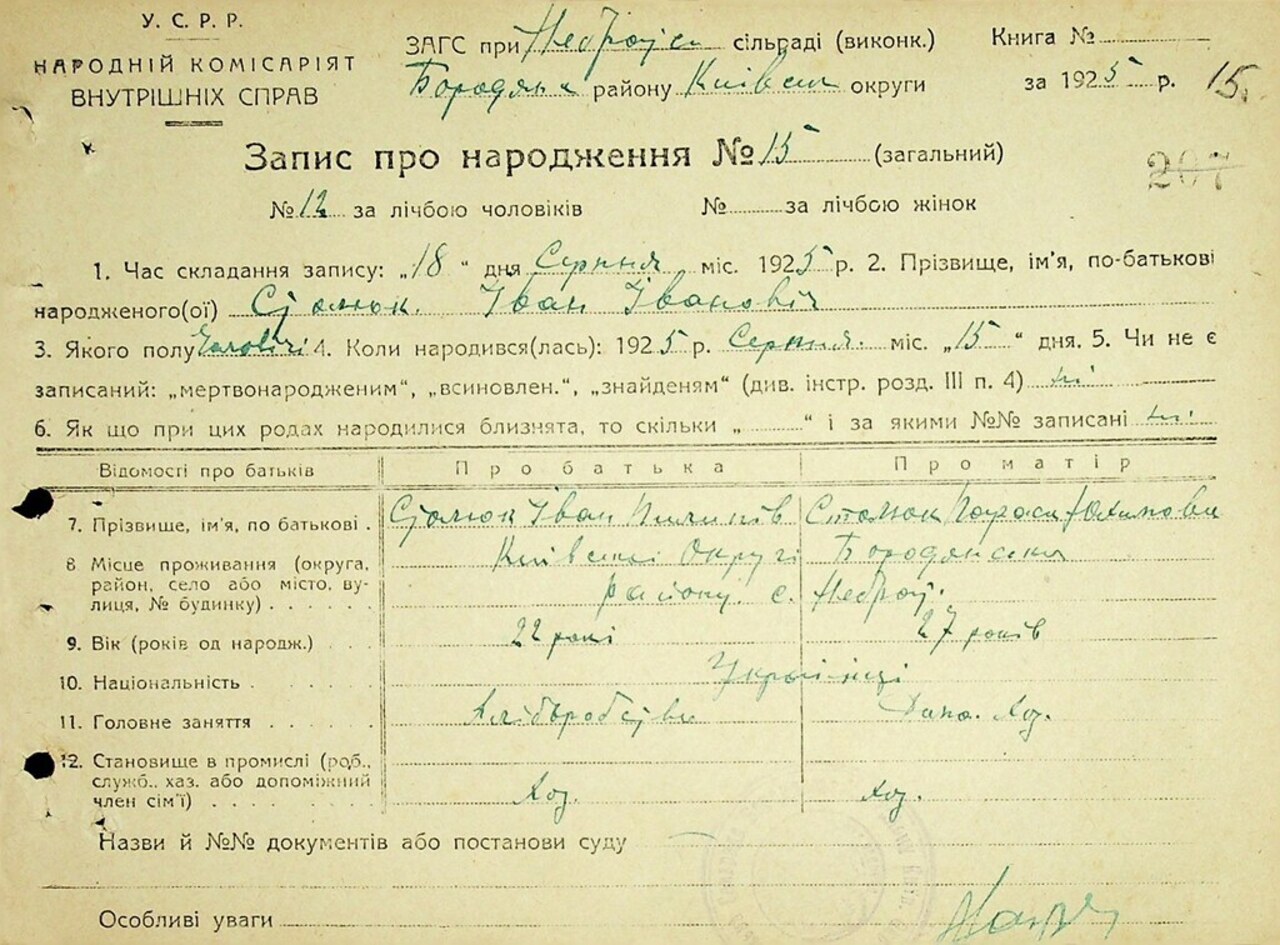 У. С. Р. Р.
НАРОДНІЙ КОМІСАРІЯТ
ВНУТРІШНІХ СПРАВ
ЗАГС при сільраді (виконк.)
Бородянк району Київськ округи
Книга №
за 1925 р.
15.
Запис про народження № 15 (загальний)
207
№ 12 за лічбою чоловіків № за лічбою жінок
1. Час складання запису: „18“ дня Серпня міс. 1925 р. 2. Прізвище, ім'я, по-батькові
народженого(ої) Столюк Іван Іванович
3. Якого полу 4. Коли народився(лась): 1925 р. Серпня міс. „15“ дня. 5. Чи не є
записаний: „мертвонародженим“, „всиновлен.“, „знайденям“ (див. інстр. розд. III п. 4) ні
6. Як що при цих родах народилися близнята, то скільки „ “ і за якими №№ записані ні
Відомості про батьків Про батька Про матір
7. Прізвище, ім'я, по батькові . Столюк Іван Пилипів Столюк
8 Місце проживання (округа, район, село або місто, вулиця, № будинку) . . . . . . Київської Округі Бородянськ
району. с.
9. Вік (років од народж.) . . . 22 рокі 27 років
10. Національність . . . . . . Українці
11. Головне заняття . . . . . Хліборобство Дом. Хоз.
12. Становище в промислі (роб., служб., хаз. або допоміжний член сім'ї) . . . . . . . . Хоз. Хоз.
Назви й №№ документів або постанови суду
Особливі уваги